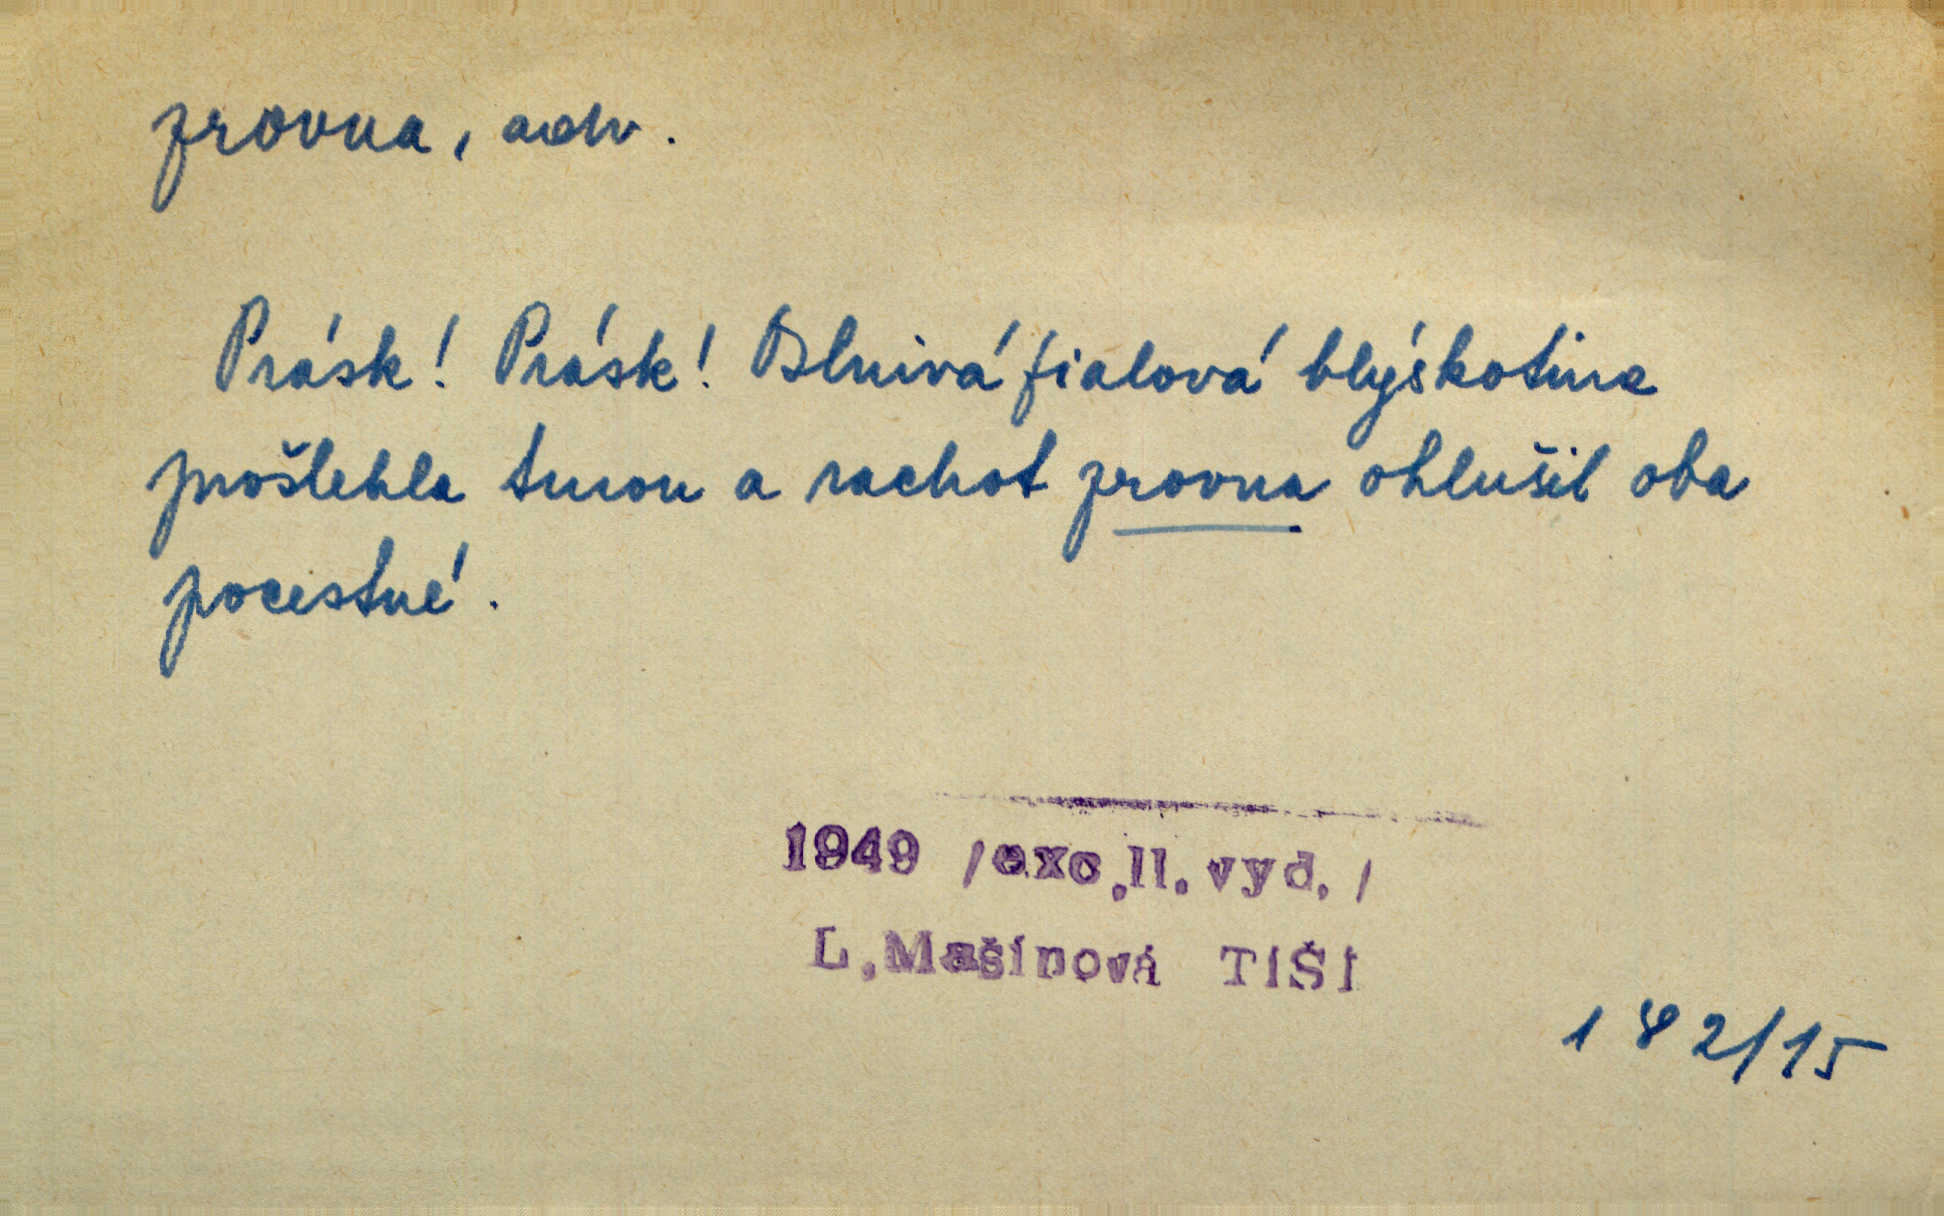 zrovna, adv.
Prásk! Prásk! Oslnivá fialová blýskotina
prošlehla tmou a rachot zrovna ohlušil oba
pocestné.
1949 /exc.II.vyd./
L.Mašínová TIŠI
182/15